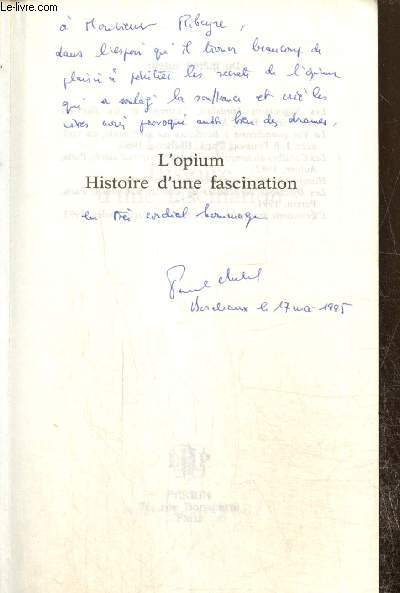 Le-livre.com
à Monsieur Ribeyre,
dans l'espoir qu'il trouver beaucoup de
plaisir à pénétrer les secrets de l'opium
qui a soulagé la souffrance et créé les
rêves mais provoqué aussi bien des drames,
L'opium
Histoire d'une fascination
en très cordial hommage
Paul Butel
Bordeaux le 17 mai 1995
PERRIN
Paris